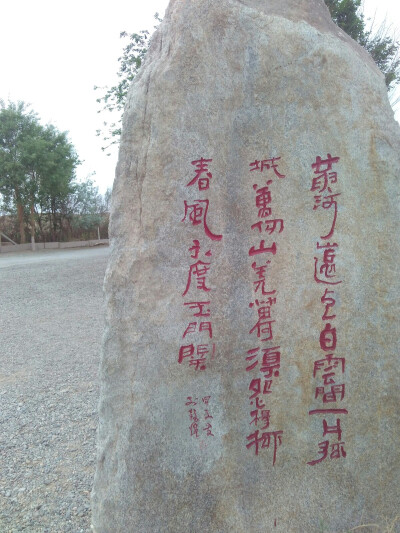 黃河遠上白雲間一片孤
城萬仞山羌笛何須怨楊柳
春風不度玉門關